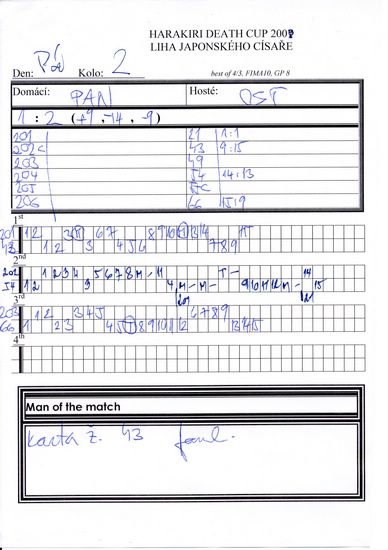 HARAKIRI DEATH CUP 200
LIHA JAPONSKÉHO CÍSAŘE
Den: Pá Kolo: 2 best of 4/3, FIMA10, GP 8
Domácí: PAN Hosté: OST
1 : 2 (+9, -14, -9)
201 21 1:1
202C 43 9:15
203 49
204 54 14:13
205
206 66 15:9
1st
201 1 2
43 1 2 3 4 5 6 7 8 9
2nd
202 1 2 3 4 5 6 7 8 M - M T - 14
54 1 2 3 4 M - M - 9 10 11 12 M - 15
3rd
203 1 2 3 4 5 6 7 8 9
66 1 2 3 4 5 T 8 9 10 11 12 13 14 15
4th
Man of the match
karta ž. 43 faul.